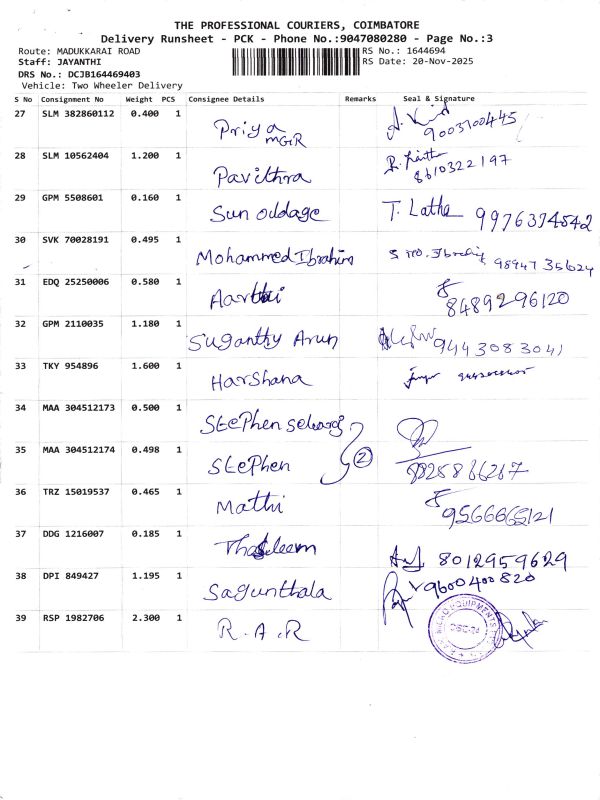 THE PROFESSIONAL COURIERS, COIMBATORE
Delivery Runsheet - PCK - Phone No.:9047080280 - Page No.:3
Route: MADUKKARAI ROAD RS No.: 1644694
Staff: JAYANTHI RS Date: 20-Nov-2025
DRS No.: DCJB164469403
Vehicle: Two Wheeler Delivery
S No Consignment No Weight PCS Consignee Details Remarks Seal & Signature
27 SLM 382860112 0.400 1 Priya MGR 9003700445
28 SLM 10562404 1.200 1 Pavithra 8610322197
29 GPM 5508601 0.160 1 Sun outdage T. Latha 9976374542
30 SVK 70028191 0.495 1 Mohammed Ibrahim 9894735624
31 EDQ 25250006 0.580 1 Aarthi 8489296120
32 GPM 2110035 1.180 1 Suganthy Arun 9443083041
33 TKY 954896 1.600 1 Harshana
34 MAA 304512173 0.500 1 Stephen selvaraj
35 MAA 304512174 0.498 1 Stephen 2
36 TRZ 15019537 0.465 1 Mathi 9566665121
37 DDG 1216007 0.185 1 Thasleem 8012959629
38 DPI 849427 1.195 1 Sagunthala 9600400820
39 RSP 1982706 2.300 1 R.A.R